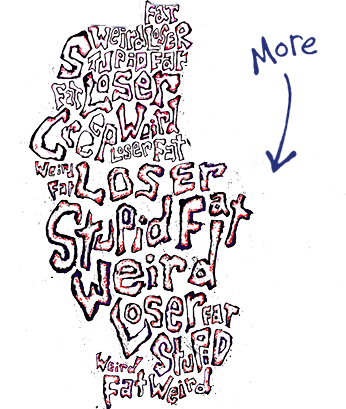 Fat
Weird Loser
Stupid Fat
Fat Loser
Creep Weird
Loser Fat
Weird
Fat Loser
Stupid Fat
Weird
Loser Fat
Stupid
Weird
Fat Weird
More